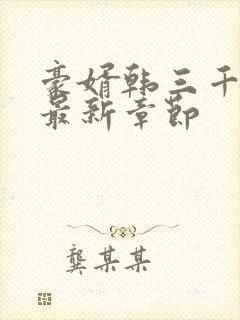 豪婿韩三千
最新章节
龚某某